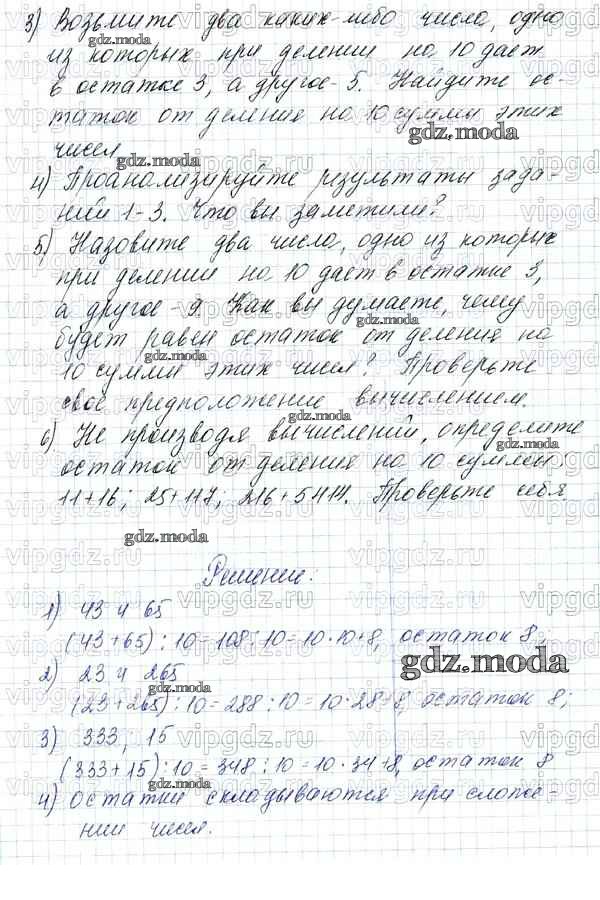 3) Возьмите два каких-либо числа, одно
из которых при делении на 10 дает
в остатке 3, а другое - 5. Найдите ос-
таток от деления на 10 суммы этих
чисел.
4) Проанализируйте результаты зада-
ний 1-3. Что вы заметили?
5) Назовите два числа, одно из которых
при делении на 10 дает в остатке 3,
а другое - 9. Как вы думаете, чему
будет равен остаток от деления на
10 суммы этих чисел? Проверьте
свое предположение вычислением.
6) Не производя вычислений, определите
остаток от деления на 10 суммы:
11+16; 25+117; 216+5414. Проверьте себя.
Решение:
1) 43 и 65
(43+65):10=108:10=10·10+8, остаток 8;
2) 23 и 265
(23+265):10=288:10=10·28+8, остаток 8;
3) 333; 15
(333+15):10=348:10=10·34+8, остаток 8
4) остатки складываются при сложе-
нии чисел.
gdz.moda
vipgdz.ru